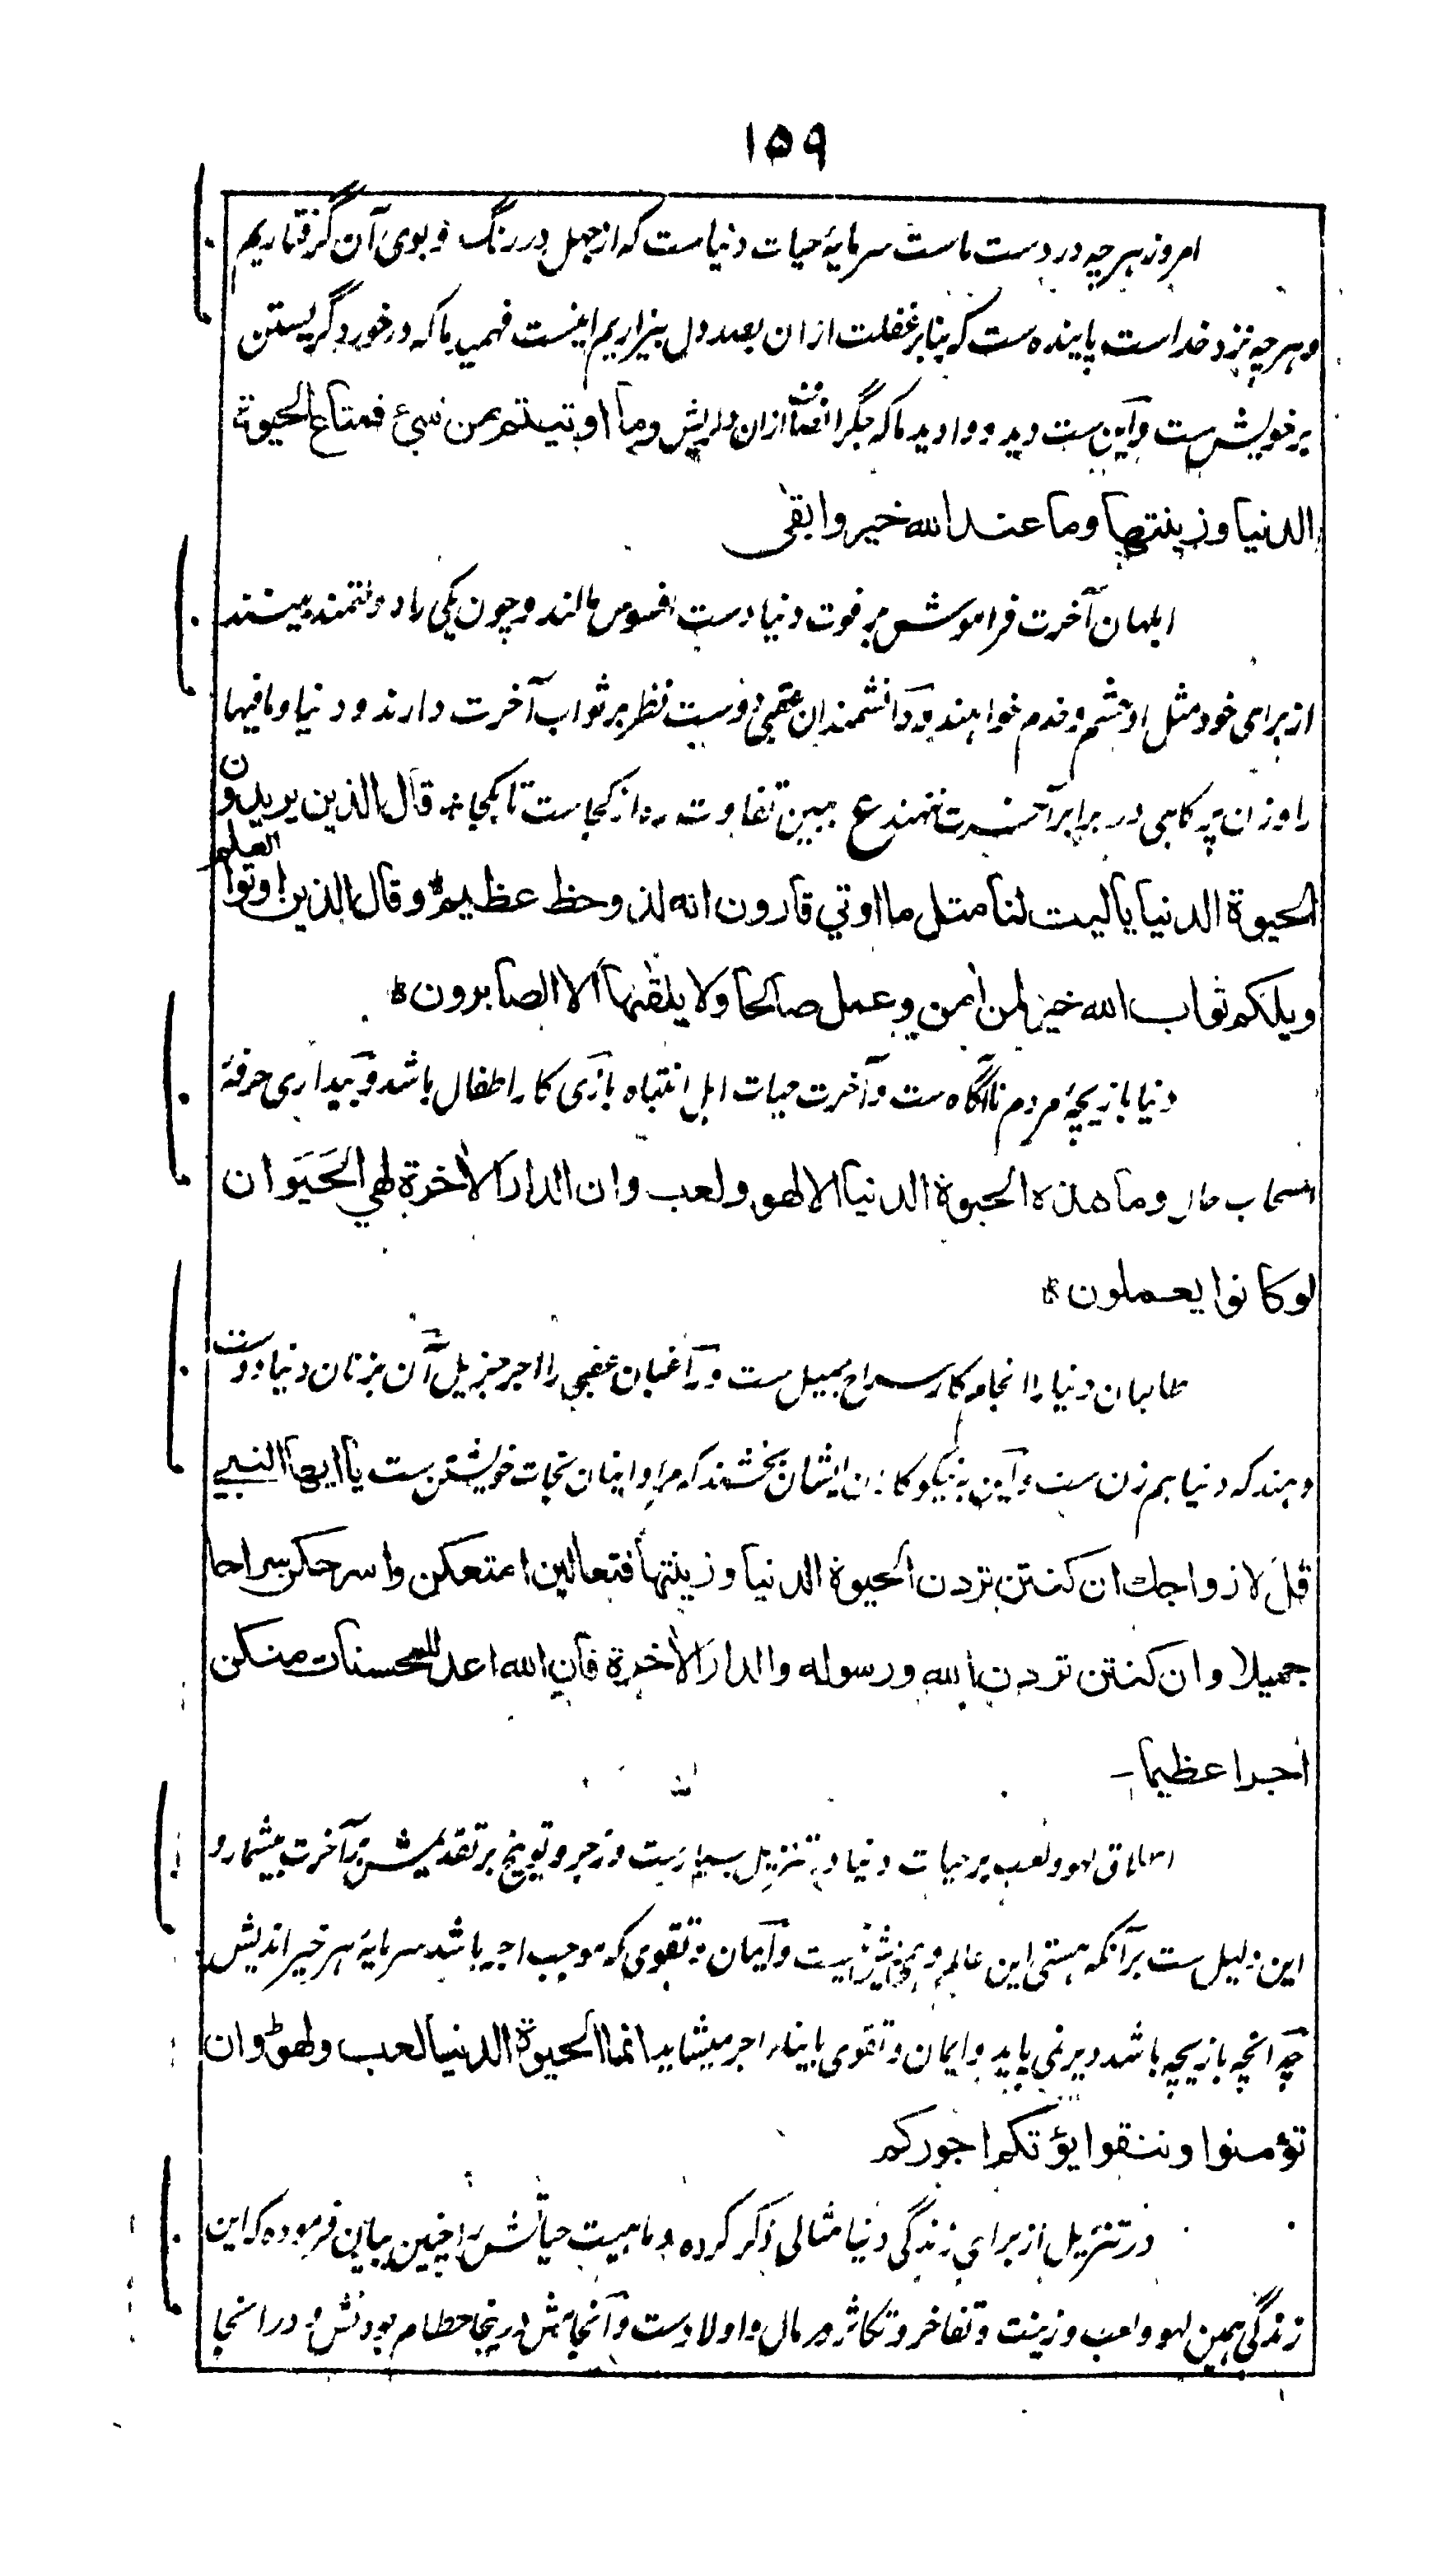 ۱۵۹
امروز هرچه در دست ماست سرمایۀ حیات دنیاست که از جهل در رنگ و بوی آن گرفتاریم
و هرچه نزد خداست پاینده ست که بنابر غفلت ازان بصد دل بیزاریم اینست فهمید ما که در خورد گریستن
بر خویش ست و این ست دید و وادید ما که جگر انصاف ازان دلریش وما اوتیتم من شیء فمتاع الحیوة
الدنیا وزینتها وما عند الله خیر وابقی
ابلهان آخرت فراموش بر فوت دنیا دست افسوس مالند و چون یکی را دولتمند بینند
از برای خود مثل او حشم و خدم خواهند و دانشمندان عقبی دوست نظر بر ثواب آخرت دارند و دنیا و مافیها
را وزن پر کاهی در برابر آخرت ننهند ع ببین تفاوت ره از کجاست تا بکجا قال الذین یریدون
الحیوة الدنیا یالیت لنا مثل ما اوتي قارون انه لذو حظ عظیم وقال الذین اوتوا العلم
ویلکم ثواب الله خیر لمن امن وعمل صالحا ولا یلقٰها الا الصابرون
دنیا بازیچۀ مردم ناآگاه ست و آخرت حیات اهل انتباه بازی کار اطفال باشد و بیداری حرفۀ
اصحاب حال وما هذه الحیوة الدنیا الا لهو ولعب وان الدار الاٰخرة لهي الحَیَوان
لو کانوا یعملون
طالبان دنیا را انجام کار سراح جمیل ست و راغبان عقبی را اجر جزیل آن بزنان دنیا دوست
دهند که دنیا هم زن ست و این به نیکوکاران ایشان بخشند که مراد اینان نجات خویشتن ست یا ایها النبي
قل لازواجك ان کنتن تردن الحیوة الدنیا وزینتها فتعالین امتعکن واسرحکن سراحا
جمیلا وان کنتن تردن الله ورسوله والدار الاٰخرة فان الله اعد للمحسنات منکن
اجرا عظیما
اطلاق لهو و لعب بر حیات دنیا در تنزیل بسیارست و زجر و توبیخ بر تقدیمش بر آخرت بیشمار و
این دلیل ست بر آنکه هستی این عالم وهمی بیش نیست و ایمان و تقوی که موجب اجر باشد سرمایۀ هر خیر اندیش
چه انچه بازیچه باشد دیر نمی پاید و ایمان و تقوی بایتاء اجر میشاید انما الحیوة الدنیا لعب ولهو وان
تؤمنوا وتتقوا یؤتکم اجورکم
در تنزیل از برای زندگی دنیا مثالی ذکر کرده و ماهیت حیاتش را چنین بیان فرموده که این
زندگی همین لهو و لعب و زینت و تفاخر و تکاثر در مال و اولادست و انجامش درینجا حطام بودنش و در انجا